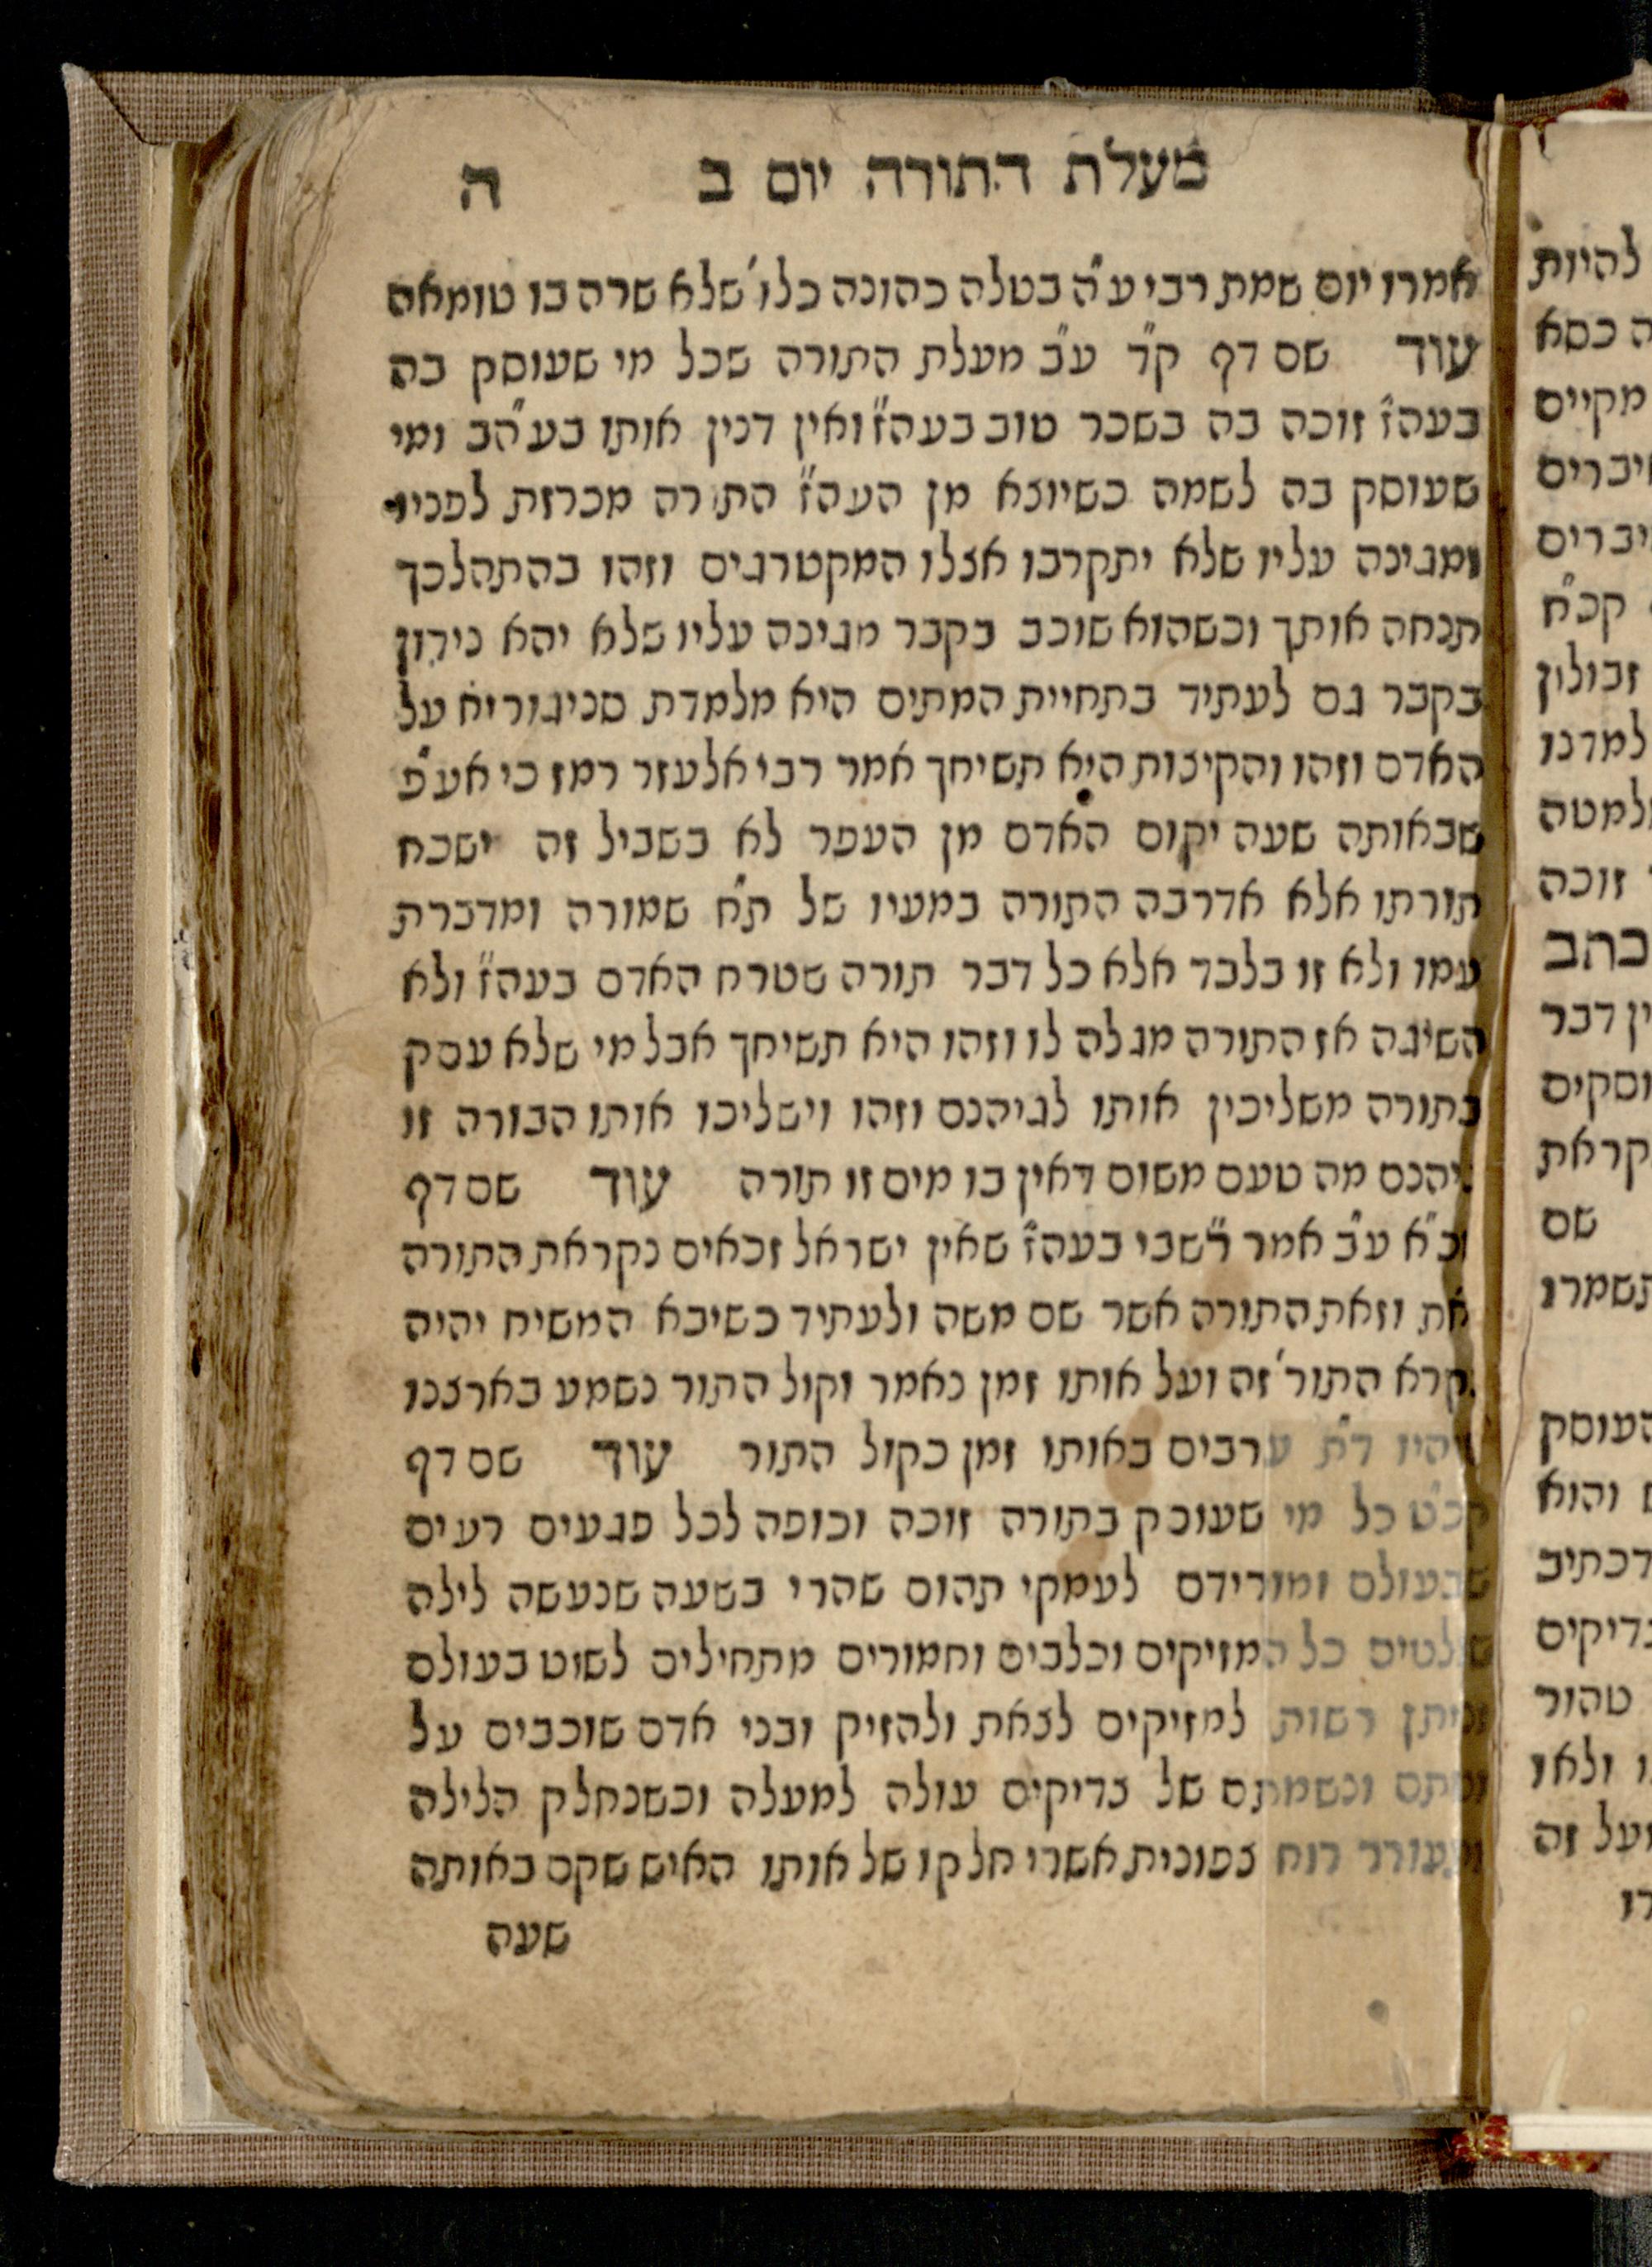 מעלת התורה יום ב ה
אמרו יום שמת רבי ע"ה בטלה כהונה כלו' שלא שרה בו טומאה
עוד שם דף ק"ד ע"ב מעלת התורה שכל מי שעוסק בה
בעה"ז זוכה בה בשכר טוב בעה"ז ואין דנין אותו בע"הב ומי
שעוסק בה לשמה כשיוצא מן העה"ז התורה מכרזת לפניו
ומגינה עליו שלא יתקרבו אצלו המקטרגים וזהו בהתהלכך
תנחה אותך וכשהוא שוכב בקבר מגינה עליו שלא יהא נידון
בקבר גם לעתיד בתחיית המתים היא מלמדת סניגוריא על
האדם וזהו והקיצות היא תשיחך אמר רבי אלעזר רמז כי אע"פ
שבאותה שעה יקום האדם מן העפר לא בשביל זה ישכח
תורתו אלא אדרבה התורה במעיו של ת"ח שמורה ומדברת
עמו ולא זו בלבד אלא כל דבר תורה שטרח האדם בעה"ז ולא
השיגה אז התורה מגלה לו וזהו היא תשיחך אבל מי שלא עסק
בתורה משליכין אותו לגיהנם וזהו וישליכו אותו הבורה זו
גיהנם מה טעם משום דאין בו מים זו תורה עוד שם דף
ע"ב אמר רשב"י בעה"ז שאין ישראל זכאים נקראת התורה
את וזאת התורה אשר שם משה ולעתיד כשיבא המשיח יהיה
נקרא התור' זה ועל אותו זמן נאמר וקול התור נשמע בארצנו
ויהיו ד"ת ערבים באותו זמן כקול התור עוד שם דף
קכ"ט כל מי שעוסק בתורה זוכה וכופה לכל פגעים רעים
שבעולם ומורידם לעמקי תהום שהרי בשעה שנעשה לילה
שולטים כל המזיקים וכלבים וחמורים מתחילים לשוט בעולם
וניתן רשות למזיקים לצאת ולהזיק ובני אדם שוכבים על
ונשמתם של צדיקים עולה למעלה וכשנחלק הלילה
רוח צפונית אשרי חלקו של אותו האיש שקם באותה
שעה
להיות
כסא
מקיים
קכ"ח
זבולון
למדנו
זוכה
כתב
דבר
שם
העוסק
והוא
דכתיב
טהור
ולאו
זה